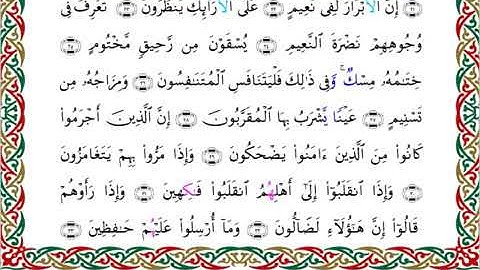 ۝٢١ إِنَّ ٱلْأَبْرَارَ لَفِى نَعِيمٍ ۝٢٢ عَلَى ٱلْأَرَآئِكِ يَنظُرُونَ ۝٢٣ تَعْرِفُ فِى
وُجُوهِهِمْ نَضْرَةَ ٱلنَّعِيمِ ۝٢٤ يُسْقَوْنَ مِن رَّحِيقٍ مَّخْتُومٍ ۝٢٥
خِتَٰمُهُۥ مِسْكٌ ۚ وَفِى ذَٰلِكَ فَلْيَتَنَافَسِ ٱلْمُتَنَٰفِسُونَ ۝٢٦ وَمِزَاجُهُۥ مِن
تَسْنِيمٍ ۝٢٧ عَيْنًا يَشْرَبُ بِهَا ٱلْمُقَرَّبُونَ ۝٢٨ إِنَّ ٱلَّذِينَ أَجْرَمُوا۟
كَانُوا۟ مِنَ ٱلَّذِينَ ءَامَنُوا۟ يَضْحَكُونَ ۝٢٩ وَإِذَا مَرُّوا۟ بِهِمْ يَتَغَامَزُونَ
۝٣٠ وَإِذَا ٱنقَلَبُوٓا۟ إِلَىٰٓ أَهْلِهِمُ ٱنقَلَبُوا۟ فَكِهِينَ ۝٣١ وَإِذَا رَأَوْهُمْ
قَالُوٓا۟ إِنَّ هَٰٓؤُلَآءِ لَضَآلُّونَ ۝٣٢ وَمَآ أُرْسِلُوا۟ عَلَيْهِمْ حَٰفِظِينَ ۝٣٣